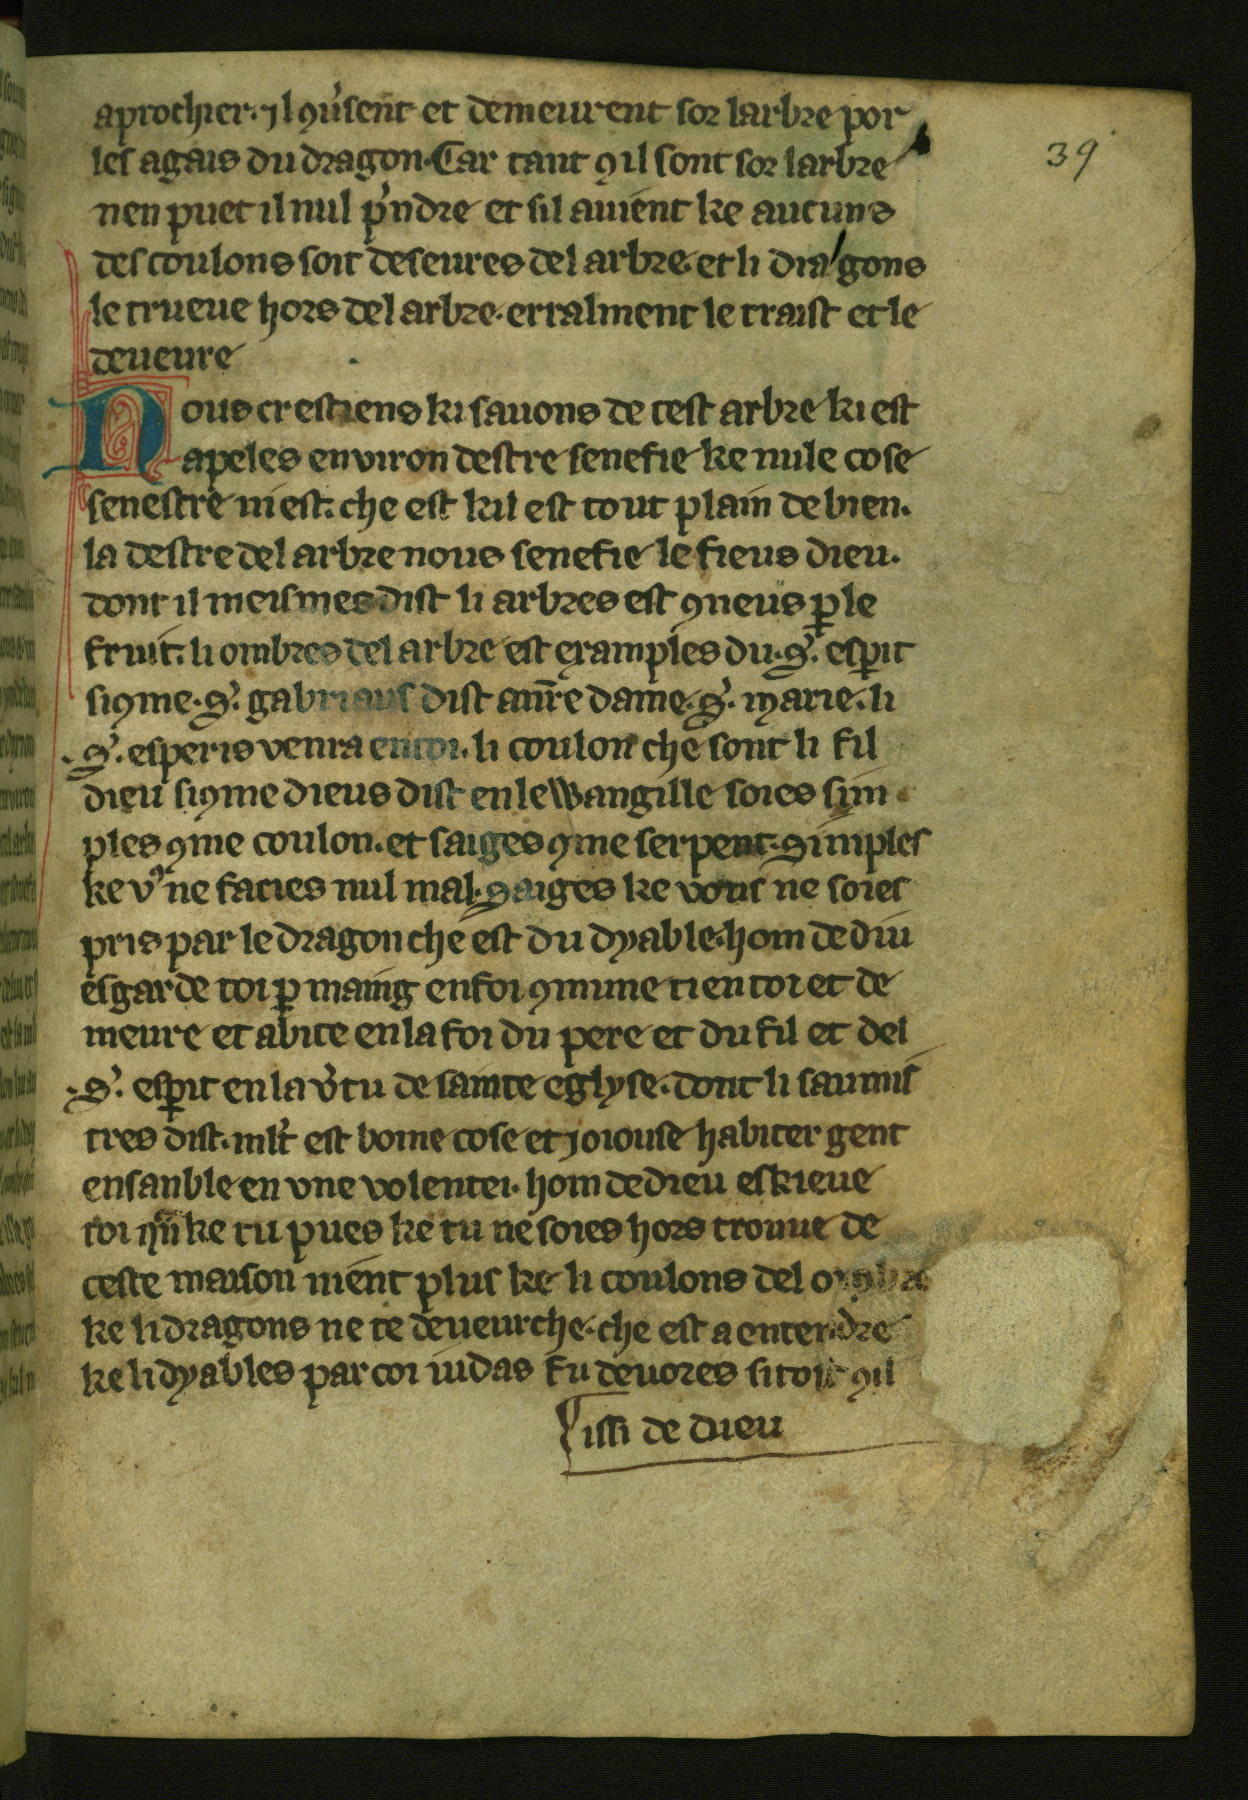 aprochier. il ꝯuͥsent et demeurent sor larbre por
les agais du dragon. Car tant ꝯ il sont sor larbre
39
nen puet il nul pͥndre et sil auient ke aucuns
des coulons soit deseures del arbre. et li dragons
le trueue hors del arbre. erralment le traist et le
deueure
Nous crestiens ki sauons de cest arbre ki est
apeles environ destre senefie ke nule cose
senestre ni est. che est kil est tout plain de bien.
la destre del arbre nous senefie le fieus dieu.
dont il meismes dist li arbres est ꝯneus ꝑ le
fruit. li ombres del arbre est examples du .S. esperit
si ꝯme .S. gabriaus dist a nr̄e dame .S. marie. li
.S. esperis venra en toi. li coulon che sont li fil
dieu si ꝯme dieus dist en lewangille soies sim
ples ꝯme coulon. et saiges ꝯme serpent. Simples
ke vꝰ ne facies nul mal. Saiges ke vous ne soies
pris par le dragon che est du dyable. hom de diu
esgarde toi ꝑ maing en foi ꝯmune tien toi et de
meure et abite en la foi du pere et du fil et del
.S. esꝑit en la vͥtu de sainte eglyse. dont li saumis
tres dist. mlt̄ est boine cose et joiouse habiter gent
ensanble en vne volentei. hom de dieu eskieue
toi qͣn ke tu pues ke tu ne soies hors troune de
ceste maison nient plus ke li coulons del ombre
ke li dragons ne te deueurche. che est a entendre
ke li dyables par coi iudas fu deuores si tost ꝯ il
issi de dieu